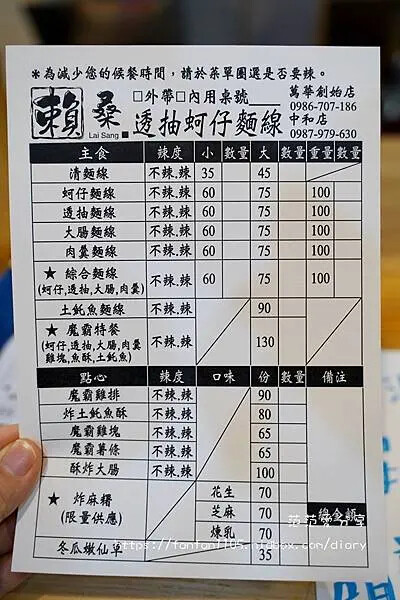 ＊為減少您的候餐時間，請於菜單圈選是否要辣。
賴桑
Lai Sang
□外帶□內用桌號
透抽蚵仔麵線
萬華創始店
0986-707-186
中和店
0987-979-630
主食 辣度 小 數量 大 數量 重量 數量
清麵線 不辣.辣 35 45
蚵仔麵線 不辣.辣 60 75 100
透抽麵線 不辣.辣 60 75 100
大腸麵線 不辣.辣 60 75 100
肉羹麵線 不辣.辣 60 75 100
★ 綜合麵線 不辣.辣 60 75 100
(蚵仔,透抽,大腸,肉羹)
土魠魚麵線 不辣.辣 90
★ 魔霸特餐 不辣.辣 130
(蚵仔,透抽,大腸,肉羹
雞塊,魚酥,土魠魚)
點心 辣度 口味 份 數量 備注
魔霸雞排 不辣.辣 90
炸土魠魚酥 不辣.辣 80
魔霸雞塊 不辣.辣 65
魔霸薯條 不辣.辣 65
酥炸大腸 不辣.辣 100
★ 炸麻糬
(限量供應)
花生 70
芝麻 70 總金額
煉乳 70
冬瓜嫩仙草 35
https://fanfan1105.nidbox.com/diary